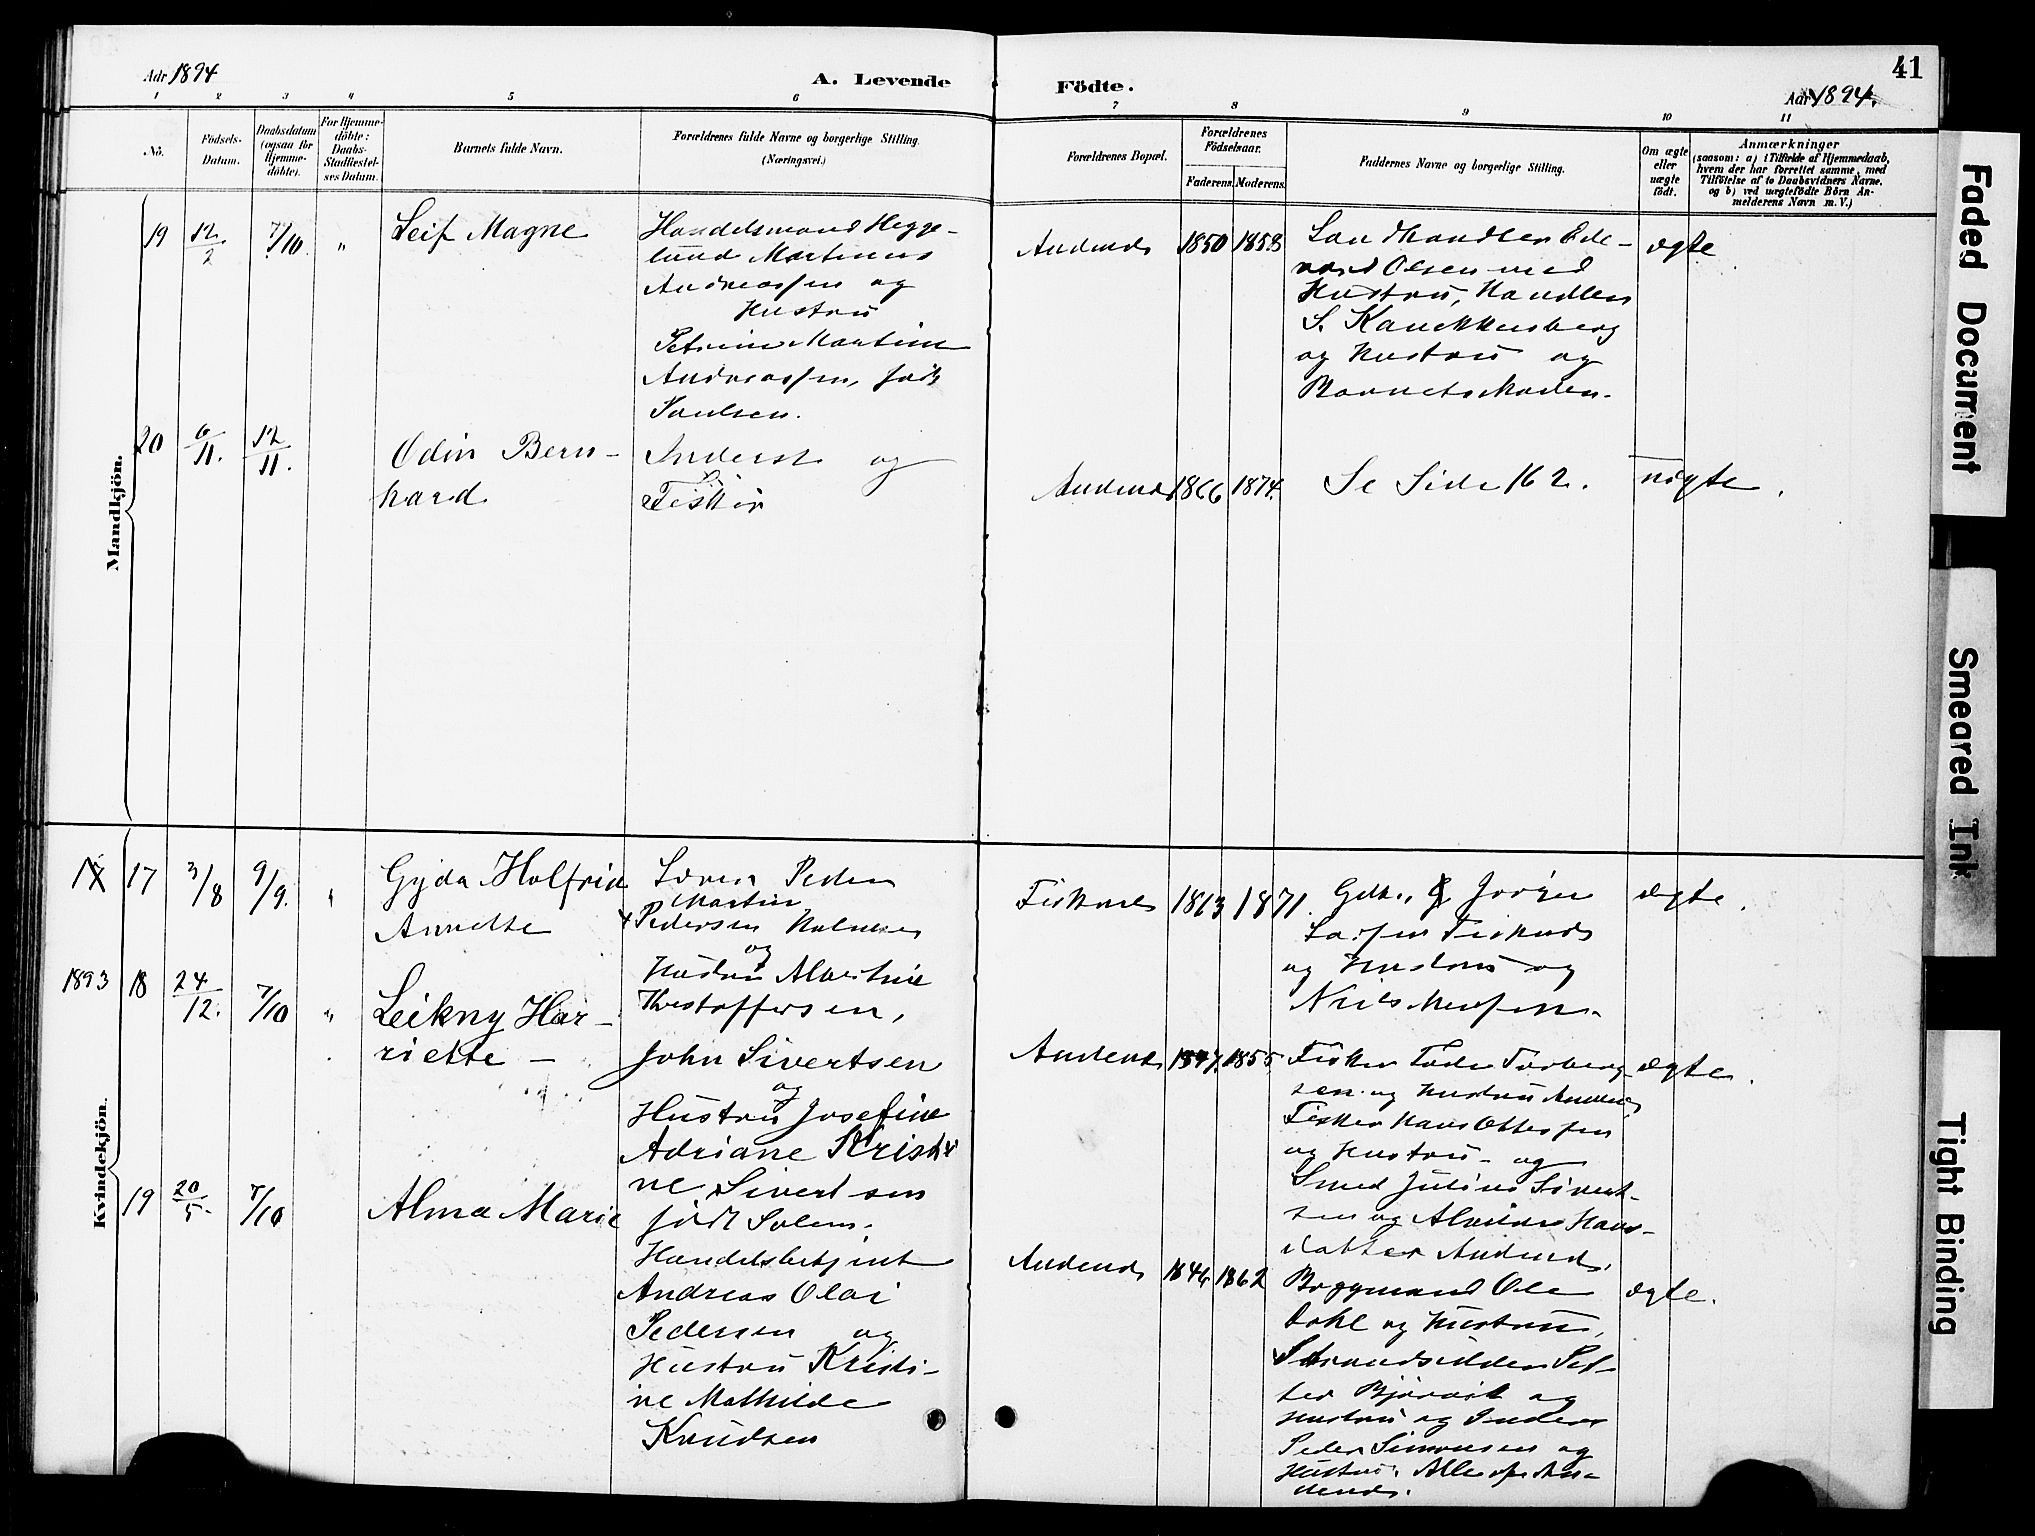 Adr 1894
A. Levende
Födte.
Aar 1894.
41
1 2 3 4 5 6 7 8 9 10 11
No.
Födsels-
Datum.
Daabsdatum
(ogsaa for
Hjemme-
döbte).
For Hjemme-
döbte:
Daabs-
Stadfæstel-
ses Datum.
Barnets fulde Navn.
Forældrenes fulde Navne og borgerlige Stilling.
(Næringsvei.)
Forældrenes Bopæl.
Forældrenes
Födselsaar.
Faderens.
Moderens.
Faddernes Navne og borgerlige Stilling.
Om ægte
eller
uægte
født.
Anmærkninger
(saasom: a) i Tilfælde af Hjemmedaab,
hvem der har forrettet samme, med
Tilföielse af to Daabsvidners Navne,
og b) ved uægtefödte Börn An-
melderens Navn m. V.)
Mandkjön.
19 12/2 7/10 "
Leif Magne
Handelsmand Hegge-
lund Martinus
Andreassen og
Hustru
Petrine Martine
Andreassen, født
Paulsen.
Andenes 1850 1858
Landhandler Ede-
vard Olsen med
Hustru, Handler
S.
og Hustru og
Barnets Moder.
ægte
20 6/11. 12/11.
Odin Bern-
hard
Inderst og
Fisker
Andenes 1866 1874.
Se Side 162.
uægte.
Kvindekjön.
17 3/8 9/9. "
Gyda Holfrid
Annette
Søren Peder
Martin
Pedersen
og
Hustru Albertine
Kristoffersen,
Fiskenes 1863 1871.
Gdbr. Jørgen
Larsen Fiskenes
og Hustru og
Nils
ægte.
1893 18 24/12. 7/10 "
Leikny Har-
riette -
John Sivertsen
og
Hustru Josefine
Adriane Kristi
ne Sivertsen
født Solem.
Andenes 1847. 1855.
Fisker Peder Torberg-
sen og Hustru Andenes
Fisker Hans Ottesen
og Hustru - og
Smed Julius Sivert-
sen og Hans-
datter Andenes.
ægte.
19 20/5. 7/10
Alma Marie
Handelsbetjent
Andreas Olai
Pedersen og
Hustru Kristi-
ne Mathilde
Knudsen
Andenes 1846 1862
Byggmand Ole
Dahl og Hustru,
Strandsidder Pet-
ter Bjørvik og
Hustru og Inderst
Peder Simonsen og
Hustru. Alle af An-
denes.
ægte.
Faded Document
Smeared Ink
Tight Binding